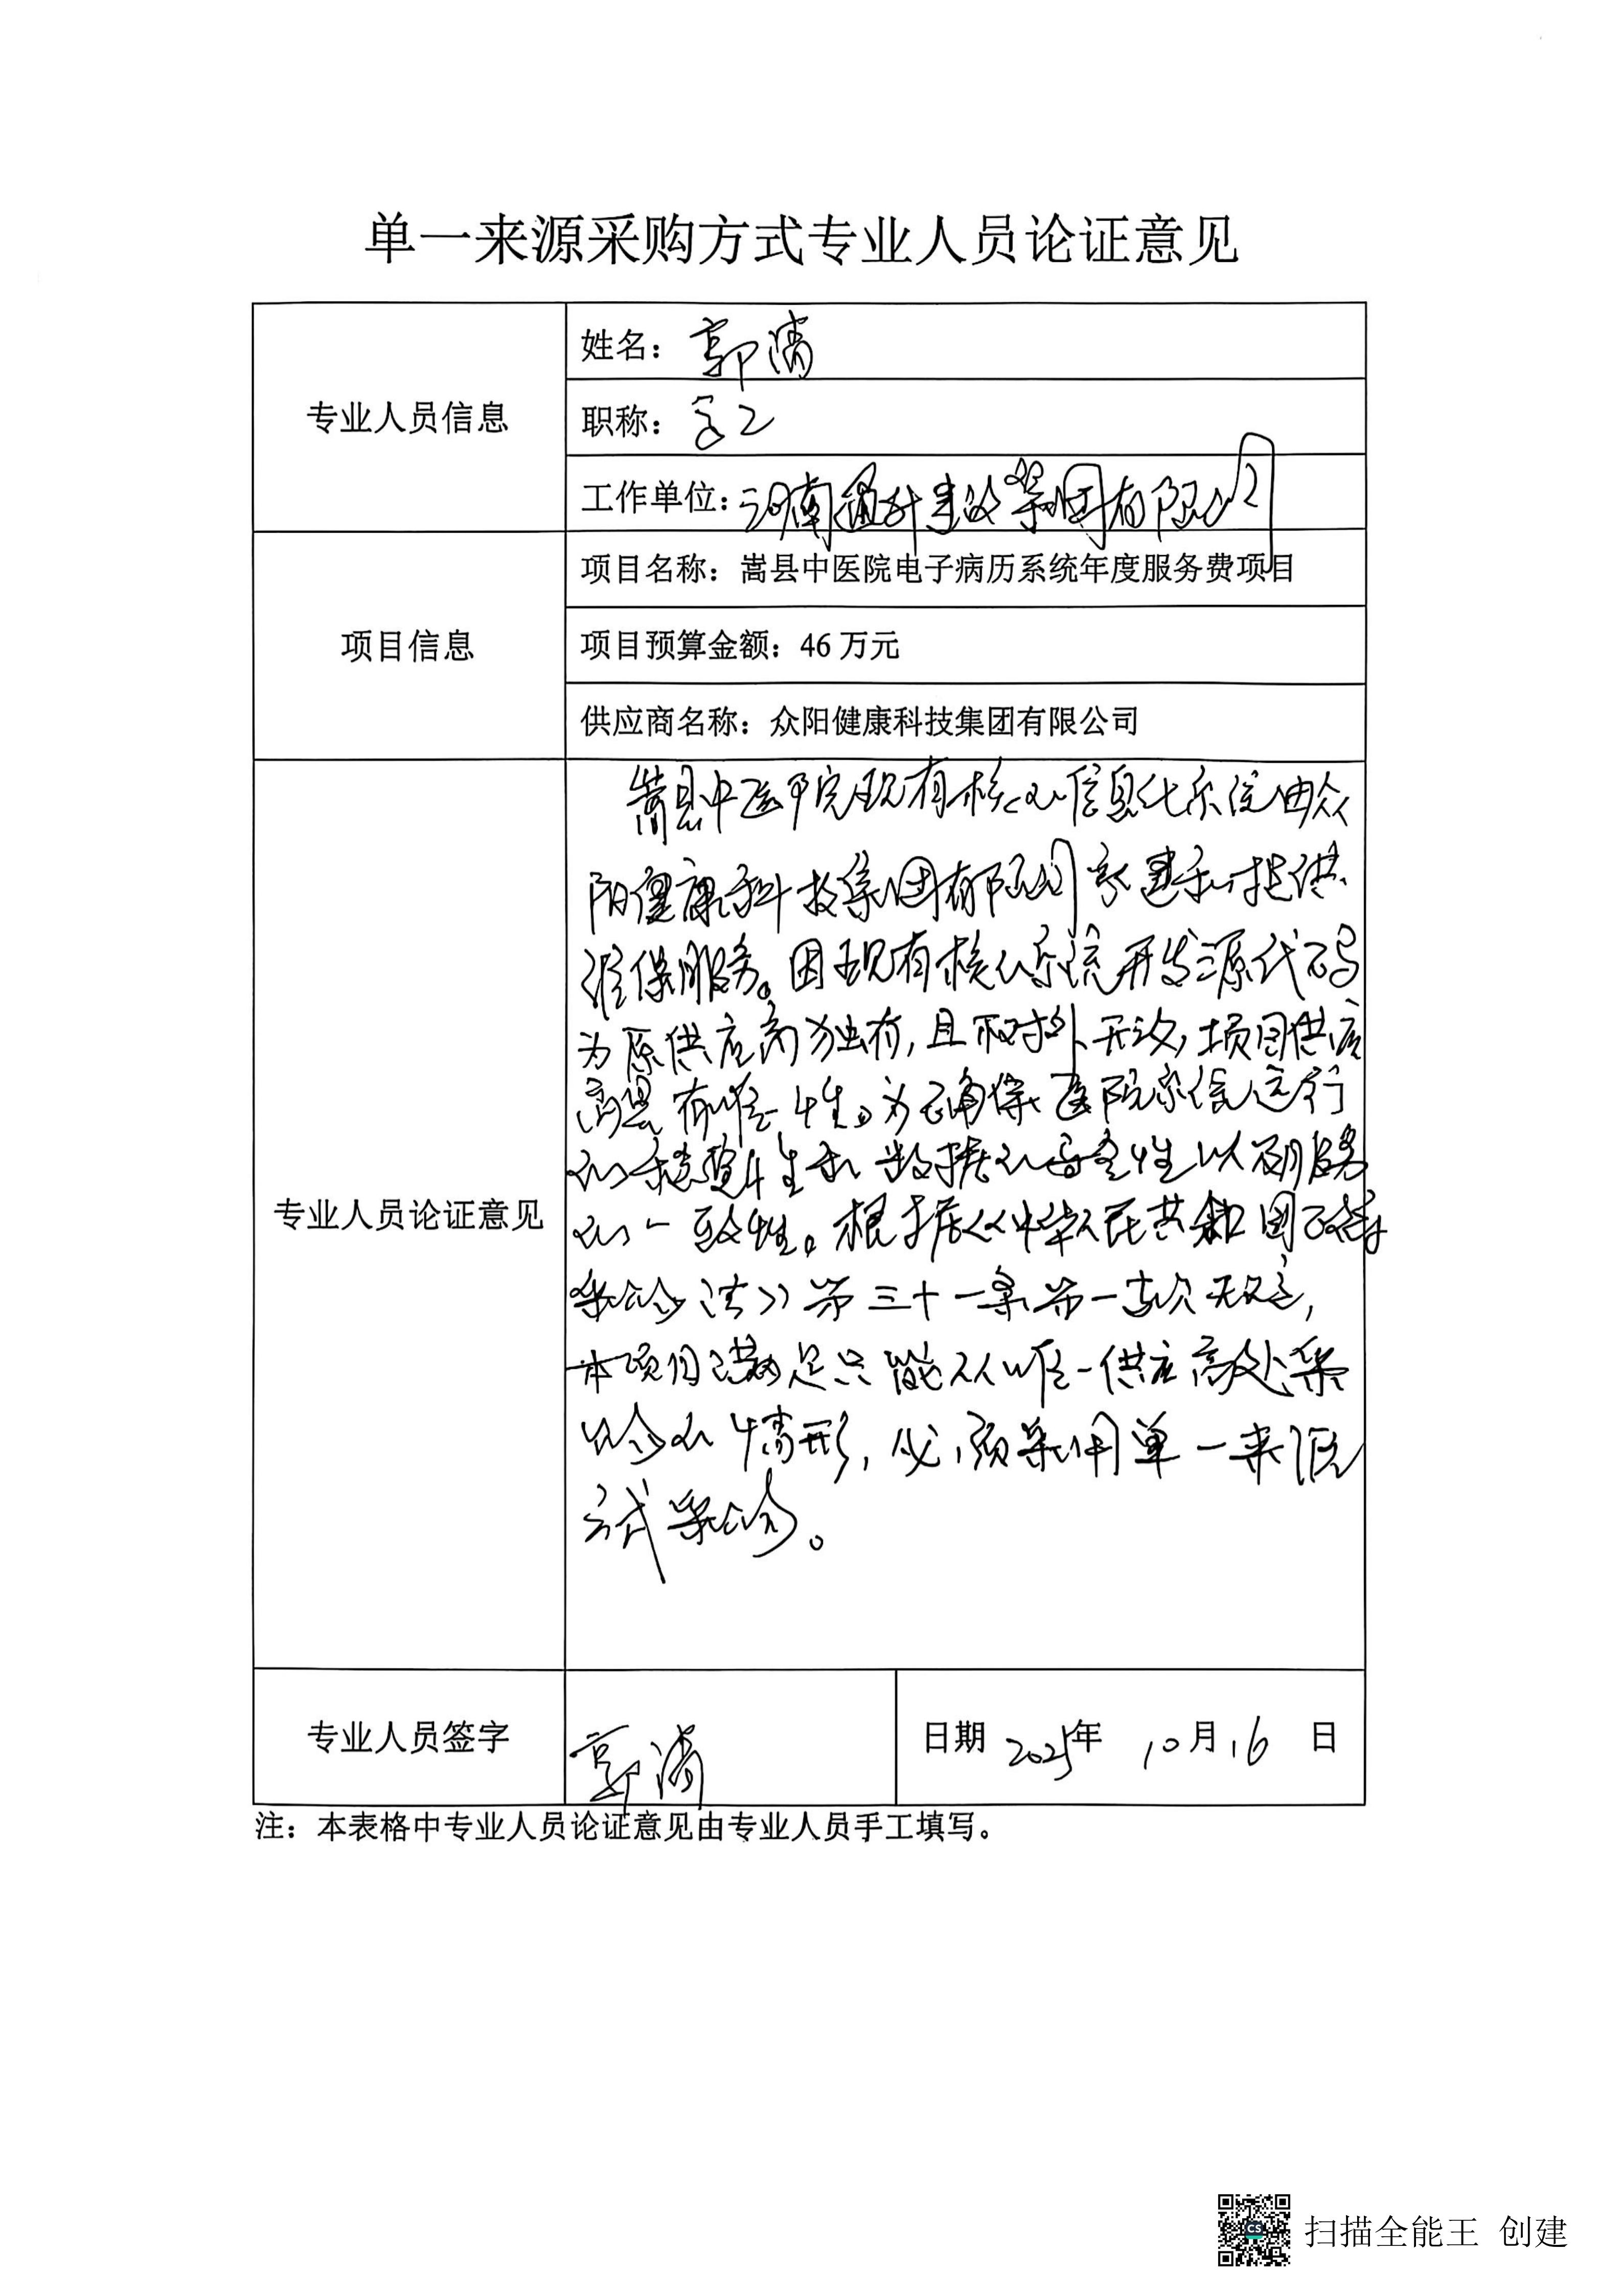 单一来源采购方式专业人员论证意见
专业人员信息
姓名：郭涛
职称：高工
工作单位：河南通升建设集团有限公司
项目信息
项目名称：嵩县中医院电子病历系统年度服务费项目
项目预算金额：46万元
供应商名称：众阳健康科技集团有限公司
专业人员论证意见
嵩县中医院现有核心信息化系统由众
阳健康科技集团有限公司承建和提供
维保服务。因现有核心系统开发源代码
为原供应商独有，且不对外开放，项目供应
商具有唯一性。为确保医院系统运行
的稳定性和数据的安全性以及服务
的一致性。根据《中华人民共和国政府
采购法》第三十一条第一款规定，
本项目满足只能从唯一供应商处采
购的情形，必须采用单一来源
方式采购。
专业人员签字
郭涛
日期 2025年 10月16日
注：本表格中专业人员论证意见由专业人员手工填写。
扫描全能王 创建